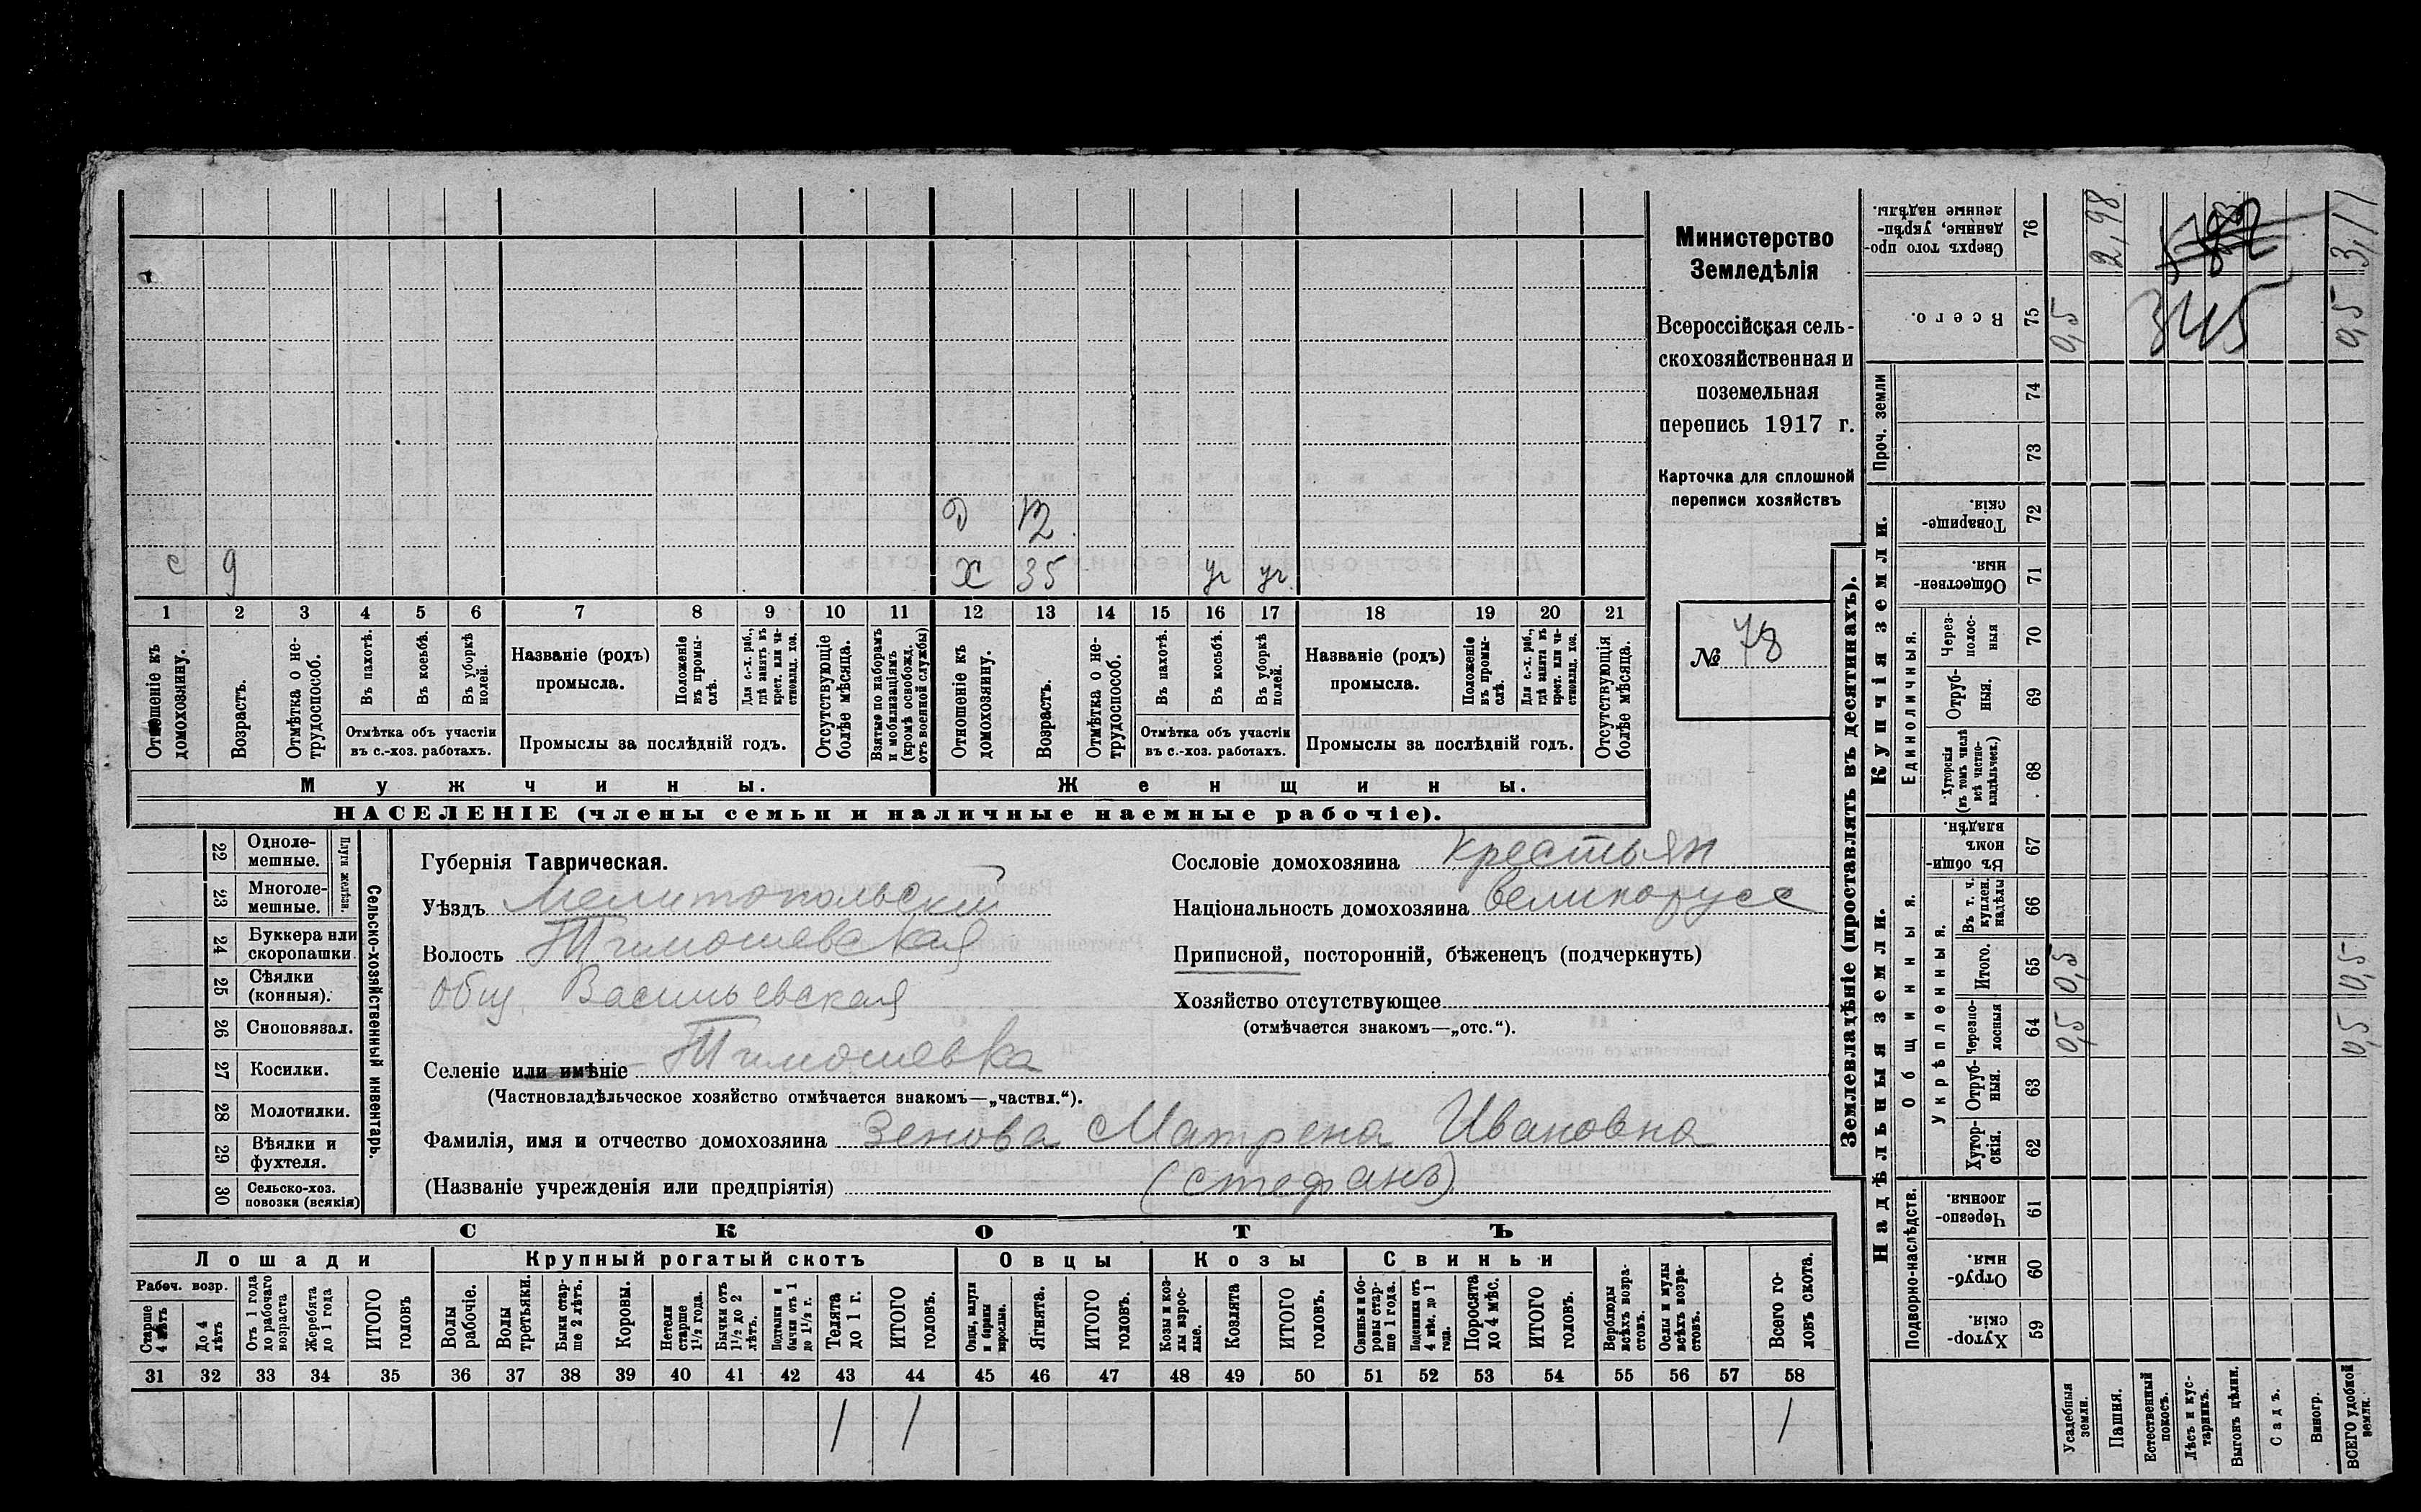 Министерство
Земледѣлія
Всероссійская сель-
скохозяйственная и
поземельная
перепись 1917 г.
Карточка для сплошной
переписи хозяйствъ
№ 78
Д 12
с 9 Х 35 уч уч.
1 2 3 4 5 6 7 8 9 10 11 12 13 14 15 16 17 18 19 20 21
Отношеніе къ домохозяину.
Возрастъ.
Отмѣтка о не-трудоспособ.
Въ пахотѣ.
Въ косьбѣ.
Въ уборкѣ полей.
Отмѣтка объ участіи
въ с.-хоз. работахъ.
Названіе (родъ)
промысла.
Положеніе въ промы-слѣ.
Для с.-х. раб., гдѣ занятъ въ крест. или ча-стновлад. хоз.
Промыслы за послѣдній годъ.
Отсутствующіе болѣе мѣсяца.
Взятые по наборамъ и мобилизаціямъ (кромѣ освобожд. отъ военной службы)
Отношеніе къ домохозяину.
Возрастъ.
Отмѣтка о не-трудоспособ.
Въ пахотѣ.
Въ косьбѣ.
Въ уборкѣ полей.
Отмѣтка объ участіи
въ с.-хоз. работахъ.
Названіе (родъ)
промысла.
Положеніе въ промы-слѣ.
Для с.-х. раб., гдѣ занята въ крест. или ча-стновлад. хоз.
Промыслы за послѣдній годъ.
Отсутствующія болѣе мѣсяца.
Мужчины. Женщины.
НАСЕЛЕНІЕ (члены семьи и наличные наемные рабочіе).
Сельско-хозяйственный инвентарь.
Плуги желѣзн.
22 Одноле-мешные.
23 Многоле-мешные.
24 Буккера или скоропашки
25 Сѣялки (конныя).
26 Сноповязал.
27 Косилки.
28 Молотилки.
29 Вѣялки и фухтеля.
30 Сельско-хоз. повозки (всякія)
Губернія Таврическая.
Уѣздъ Мелитопольскій
Волость Тимошевская
Общ. Васильевская
Селеніе или имѣніе Тимошевка
(Частновладѣльческое хозяйство отмѣчается знакомъ—„частвл.“).
Фамилія, имя и отчество домохозяина Зенова Матрена Ивановна
(Названіе учрежденія или предпріятія) (Стефанъ)
Сословіе домохозяина крестьян
Національность домохозяина великорусс
Приписной, посторонній, бѣженецъ (подчеркнуть)
Хозяйство отсутствующее
(отмѣчается знакомъ—„отс.“).
СКОТЪ
Лошади Крупный рогатый скотъ Овцы Козы Свиньи
Рабоч. возр.
Старше 4 лѣтъ
До 4 лѣтъ
Отъ 1 года до рабочаго возраста
Жеребята до 1 года
ИТОГО головъ
Волы рабочіе.
Волы третьяки.
Быки стар-ше 2 лѣтъ.
Коровы.
Нетели старше 1½ года.
Бычки отъ 1½ до 2 лѣтъ.
Подтелки и бычки отъ 1 до 1½ г.
Телята до 1 г.
ИТОГО головъ.
Овцы, валухи и бараны взрослые.
Ягнята.
ИТОГО головъ.
Козы и коз-лы взрос-лые.
Козлята
ИТОГО головъ.
Свиньи и бо-ровы стар-ше 1 года.
Подсвинки отъ 4 мѣс. до 1 года.
Поросята до 4 мѣс.
ИТОГО головъ.
Верблюды всѣхъ возра-стовъ.
Ослы и мулы всѣхъ возра-стовъ.
Всего го-ловъ скота.
31 32 33 34 35 36 37 38 39 40 41 42 43 44 45 46 47 48 49 50 51 52 53 54 55 56 57 58
1 1 1
Землевладѣніе (проставлять въ десятинахъ).
Надѣльныя земли. Купчія земли. Проч. земли
Подворно-наслѣдств.
Общинныя.
Укрѣпленныя.
Единоличныя.
59 Хутор-скія.
60 Отруб-ныя.
61 Черезпо-лосныя.
62 Хутор-скія.
63 Отруб-ныя.
64 Черезпо-лосныя
65 Итого.
66 Въ т. ч. куплен. надѣлы
67 Въ общи-номъ владѣн.
68 Хуторскія (въ томъ числѣ всѣ частно-владѣльческ.)
69 Отруб-ныя.
70 Через-полос-ныя
71 Обществен-ныя.
72 Товарище-скія.
73
74
75 Всего.
76 Сверхъ того про-данные, укрѣп-ленные надѣлы.
Усадебныя земли. 0,5 0,5 0,5
Пашня. 2,98
Естественный покосъ.
Лѣсъ и кус-тарникъ.
Выгонъ цѣлин.
Садъ.
Виногр.
ВСЕГО удобной земли. 0,5 0,5 0,5 3,11
345